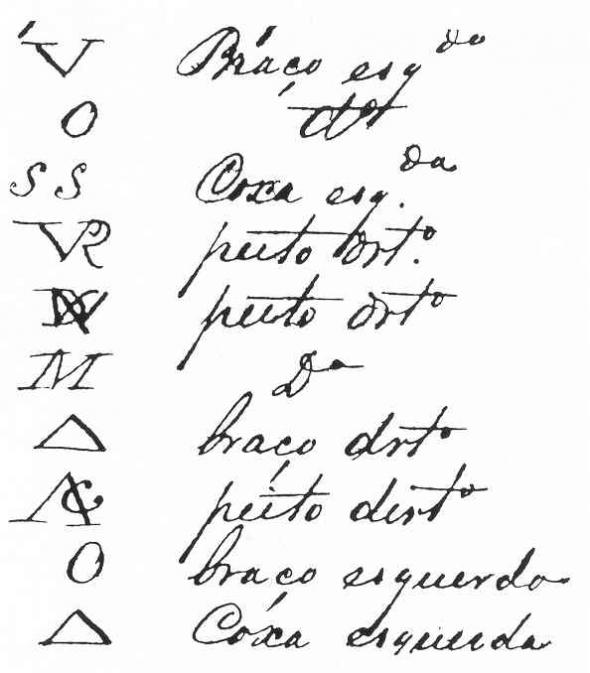 V Bráço esq.do
O do
SS Coxa esq.da
VR peito drt.o
peito drto
M Do
Δ braço drto
peito dirto
O braço esquerdo
Δ Cóxa esquerda